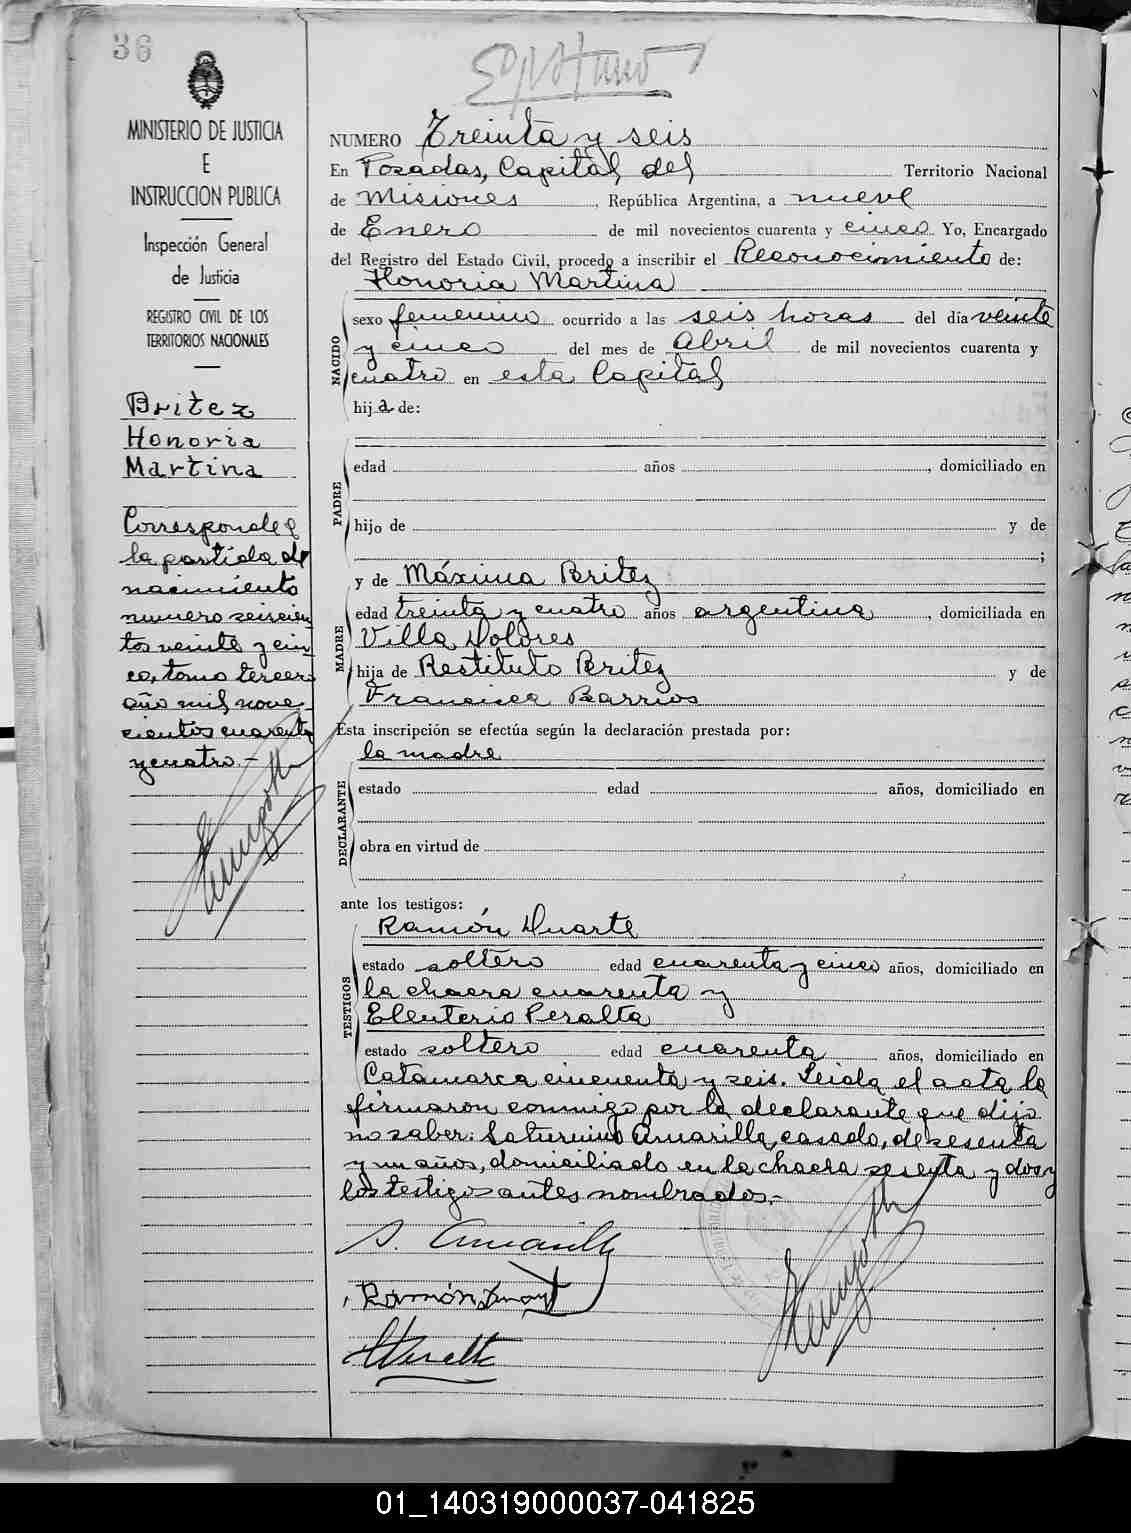 36
MINISTERIO DE JUSTICIA
E
INSTRUCCION PUBLICA
Inspección General
de Justicia
REGISTRO CIVIL DE LOS
TERRITORIOS NACIONALES
Britez
Honoria
Martina
Corresponde a
la partida de
nacimiento
numero seiscien
tos veinte y cin
co, tomo tercero
año mil nove-
cientos cuarenta
y cuatro.-
NUMERO Treinta y seis
En Posadas, Capital del Territorio Nacional
de Misiones, República Argentina, a nueve
de Enero de mil novecientos cuarenta y cinco Yo, Encargado
del Registro del Estado Civil, procedo a inscribir el Reconocimiento de:
Honoria Martina
NACIDO
sexo femenino ocurrido a las seis horas del día veinte
y cinco del mes de Abril de mil novecientos cuarenta y
cuatro en esta Capital
hija de:
PADRE
edad años , domiciliado en
hijo de y de
;
y de Máxima Britez
MADRE
edad treinta y cuatro años argentina, domiciliada en
Villa Dolores
hija de Restituto Britez y de
Francisca Barrios
Esta inscripción se efectúa según la declaración prestada por:
la madre
DECLARANTE
estado edad años, domiciliado en
obra en virtud de
ante los testigos:
Ramón Duarte
TESTIGOS
estado soltero edad cuarenta y cinco años, domiciliado en
la chacra cuarenta y
Eleuterio Peralta
estado soltero edad cuarenta años, domiciliado en
Catamarca cincuenta y seis. Leida el acta la
firmaron conmigo por la declarante que dijo
no saber: Saturnino Amarilla, casado, de sesenta
y un años, domiciliado en la chacra sesenta y dos y
los testigos antes nombrados.-
S. Amarilla
Ramón Duarte
01_140319000037-041825